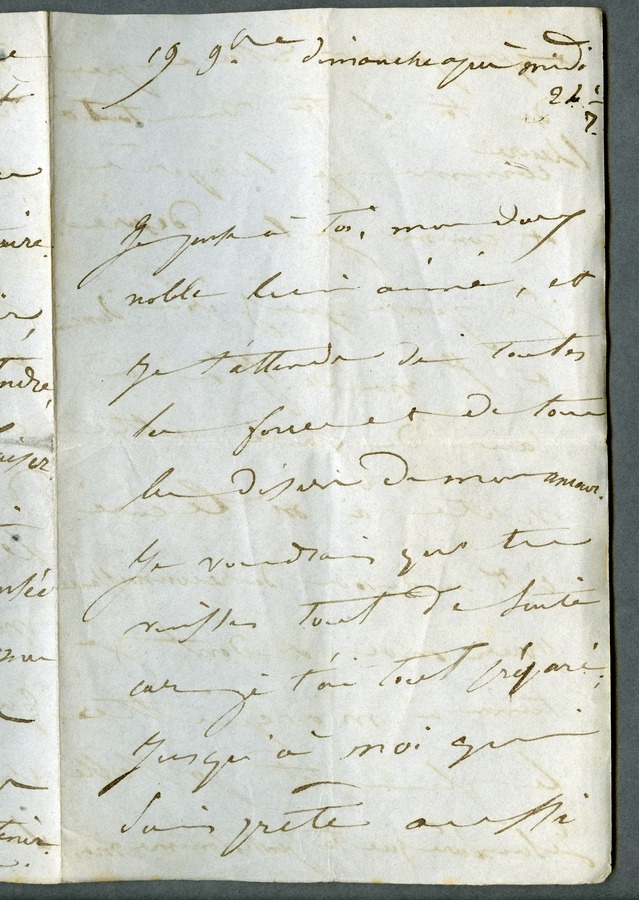 19 9bre dimanche après midi
2h ½
7.
Je pense à toi, mon doux
noble bien aimé, et
je t'attends de toutes
les forces et de tous
les désirs de mon amour.
Je voudrais que tu
vinsses tout de suite
car je t'ai tout préparé,
jusqu'à moi qui
suis prête aussi
aire
ir,
endre,
aiser
nsée
enir